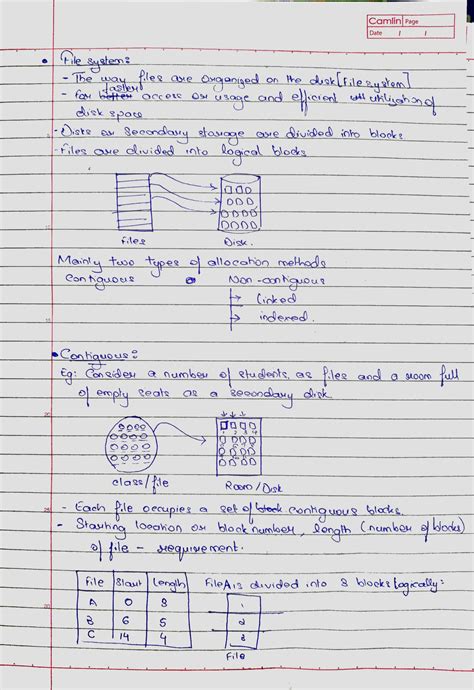 Camlin Page
Date / /
• File system:
- The way files are organized on the disk [file system]
- For better faster access or usage and efficient utilization of
disk space
- Disks or secondary storage are divided into blocks
- Files are divided into logical blocks
files
Disk.
Mainly two types of allocation methods
Contiguous
Non-contiguous
→ linked
→ indexed.
• Contiguous:
Eg: Consider a number of students, as files and a room full
of empty seats as a secondary disk.
class/file
Room/Disk
- Each file occupies a set of block contiguous blocks.
- Starting location or block number, length (number of blocks)
of file - requirement.
File Start Length
A 0 3
B 6 5
C 14 4
File A is divided into 3 blocks logically:
1
2
3
File